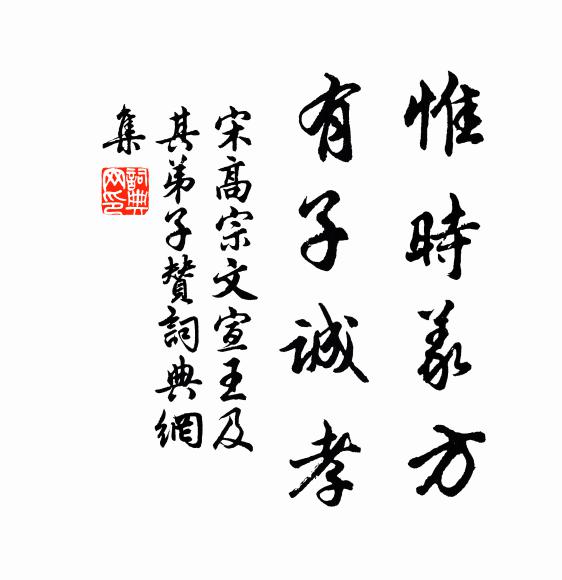 惟時義方
有子誠孝
宋高宗文宣王及
其弟子贊詞典網
集
詞典網印